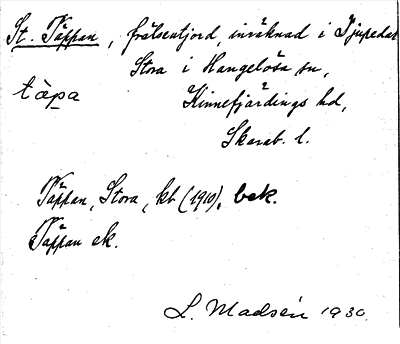 St. Täppan, frälsentjord, inräknad i Djupedal
Stora i Hangelösa sn,
täpa
Kinnefjärdings hd,
Skarab. l.
Täppan, Stora, kb (1910), bek.
Täppan ek.
L. Madsén 1930.